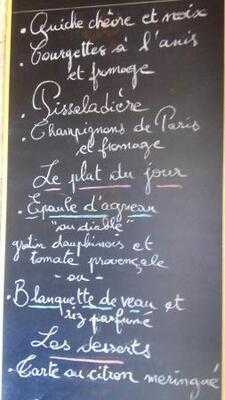 • Quiche chèvre et noix
• Courgettes à l'anis
et fromage
• Pissaladière
• Champignons de Paris
et fromage
Le plat du jour
• Epaule d'agneau
"au diable"
gratin dauphinois et
tomate provençale
- ou -
• Blanquette de veau et
riz parfumé
Les desserts
• Tarte au citron meringué